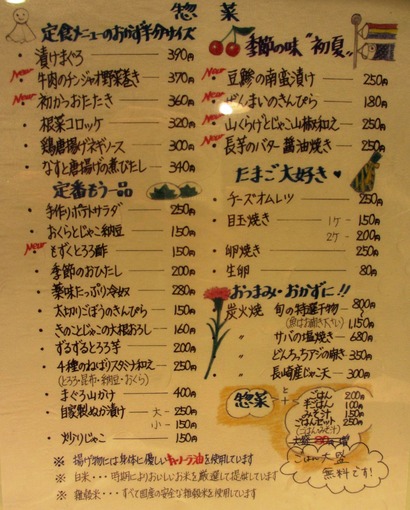 惣菜
定食メニューのおかず半分サイズ
・漬けまぐろ 390円
New ・牛肉のチンジャオ野菜巻き 370円
New ・初かつおたたき 360円
・根菜コロッケ 320円
・鶏唐揚げネギソース 300円
・なすと唐揚げの煮びたし 340円
定番もう一品
・手作りポテトサラダ 250円
・おくらとじゃこ納豆 150円
New ・もずくとろろ酢 150円
・季節のおひたし 200円
・薬味たっぷり冷奴 280円
・太切りごぼうのきんぴら 150円
・きのことじゃこの大根おろし 160円
・ずるずるとろろ芋 200円
・4種のねばりスタミナ和え 250円
(とろろ・昆布・納豆・おくら)
・まぐろ山かけ 400円
・自家製ぬか漬け 大 250円
小 150円
・刈りじゃこ 150円
※揚げ物には身体に優しいキャノーラ油を使用しています
※白米・・・時期によりおいしいお米を厳選して提供しています
※雑穀米・・・すべて国産の安全な雑穀米を使用しています
季節の味"初夏"
New ・豆鯵の南蛮漬け 250円
New ・ぜんまいのきんぴら 180円
New ・山くらげとじゃこ山椒和え 250円
New ・長芋のバター醤油焼き 250円
たまご大好き♥
・チーズオムレツ 250円
・目玉焼き 1ケ 150円
2ケ 200円
・卵焼き 250円
・生卵 80円
おつまみ・おかずに!!
炭火焼 旬の特選干物 800円〜1,150円
(魚はお聞き下さい)
〃 サバの塩焼き 680円
〃 どんちっちアジの開き 350円
〃 長崎産じゃこ天 300円
惣菜 +
ごはん 200円
半ごはん 100円
みそ汁 150円
ごはんセット 250円
(ごはん・みそ汁)
ごはん大盛
無料です!